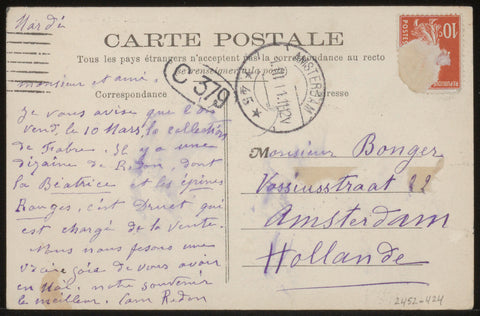 Mardi
CARTE POSTALE
Tous les pays étrangers n'acceptent pas la correspondance au recto
(se renseigner à la poste)
Correspondance
Adresse
C 379
AMSTERDAM
10
POSTES
REPUBLIQUE
monsieur et ami,
Je vous avise que l'on
vend, le 10 Mars, la collection
de Fabre. Il y a une
dizaine de Redon, dont
la Béatrice et les épines
Rouges, c'est Druet qui
est chargé de la vente.
Nous nous fesons une
vraie joie de vous avoir
en Mai. notre souvenir
le meilleur. Cam Redon
Monsieur Bonger
Vossiusstraat 22
Amsterdam
Hollande
2452-424